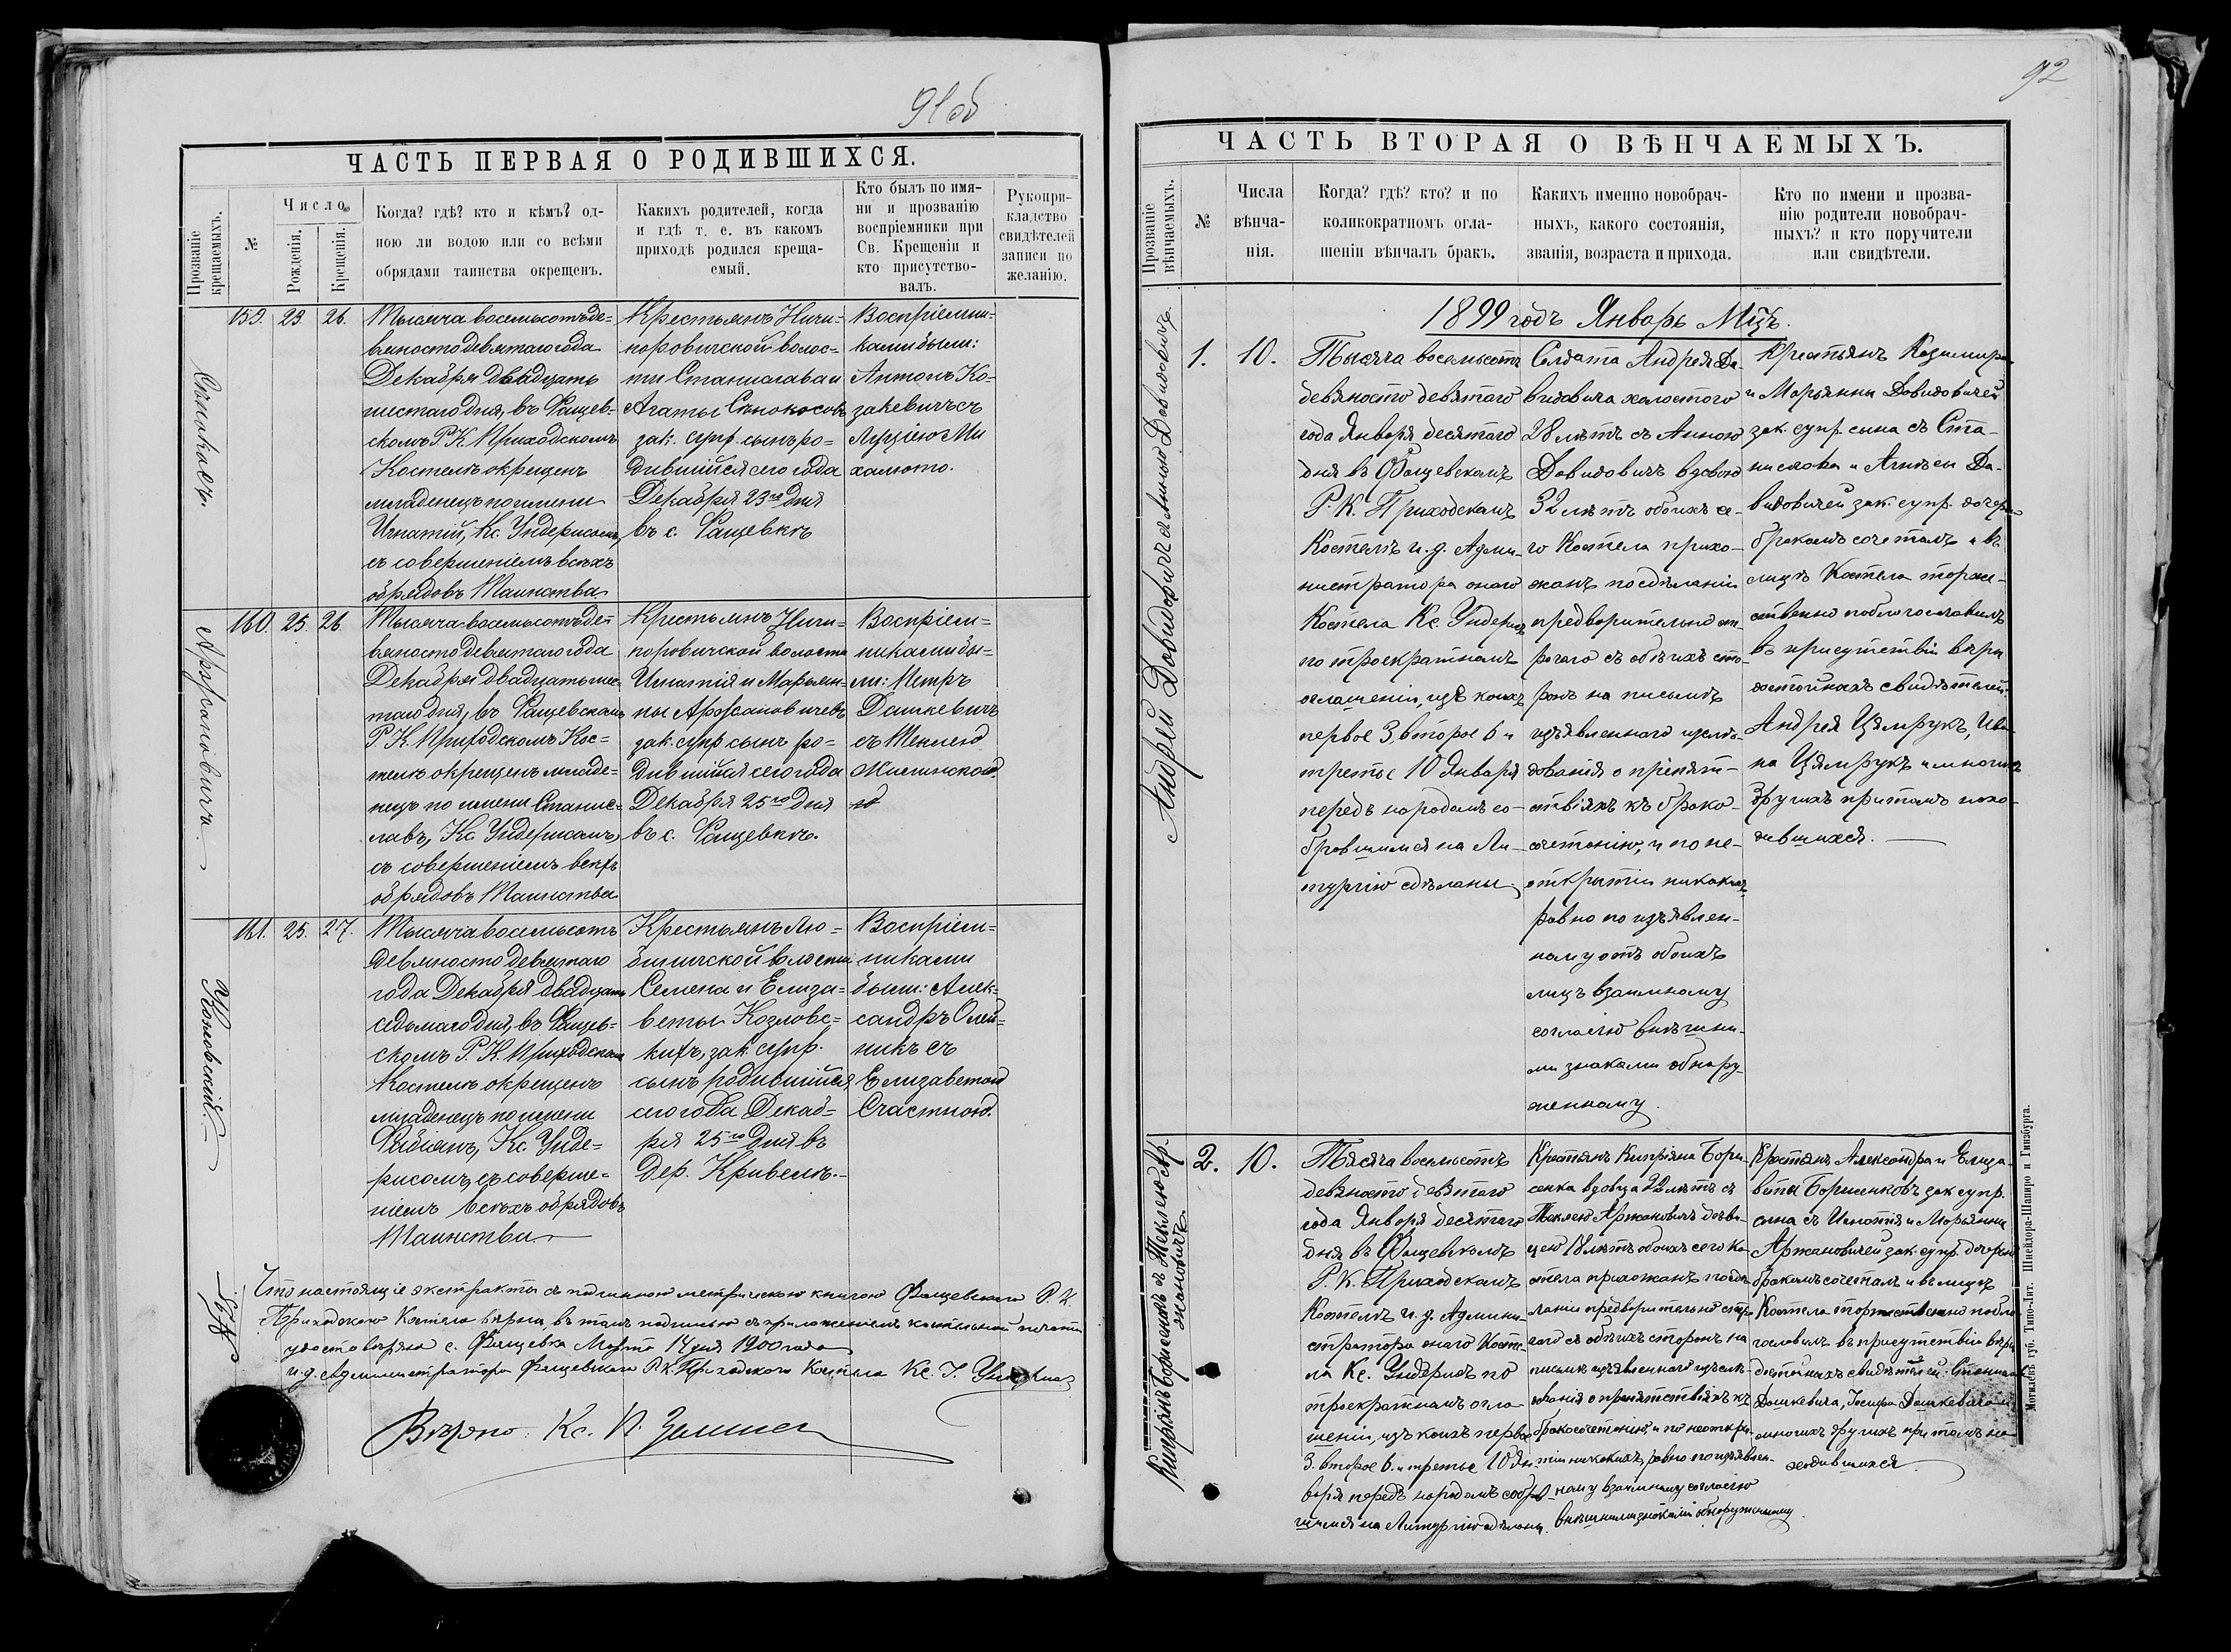 91 об
ЧАСТЬ ПЕРВАЯ О РОДИВШИХСЯ.
Прозваніе крещаемыхъ.
№
Число
Рожденія.
Крещенія.
Когда? гдѣ? кто и кѣмъ? од-
ною ли водою или со всѣми
обрядами таинства окрещенъ.
Какихъ родителей, когда
и гдѣ т. е. въ какомъ
приходѣ родился креща-
емый.
Кто былъ по имя-
ни и прозванію
воспріемники при
Св. Крещеніи и
кто присутство-
валъ.
Рукопри-
кладство
свидѣтелей
записи по
желанію.
Сѣнокосъ.
159. 23. 26.
Тысяча восемьсотъ де-
вяностодевятаго года
Декабря двадцать
шестаго дня, въ Фащев-
скомъ Р. К. Приходскомъ
Костелѣ окрещенъ
младенецъ по имени
Игнатій, Кс. Ундерисомъ,
съ совершеніемъ всѣхъ
обрядовъ Таинства
Крестьянъ Ничи-
поровичской волос-
ти Станислава и
Агаты Сѣнокосовъ
зак. супр. сынъ ро-
дившійся сего года
Декабря 23го дня
въ с. Фащевкѣ
Воспріемни-
ками были:
Антонъ Ко-
закевичъ съ
Луціею Ми
халото.
Аржановичъ.
160. 25. 26.
Тысяча восемьсотъ де-
вяностодевятаго года
Декабря двадцать шес-
таго дня, въ Фащевскомъ
Р. К. Приходскомъ Кос-
телѣ окрещенъ младе-
нецъ по имени Станис-
лавъ, Кс. Ундерисомъ,
съ совершеніемъ всѣхъ
обрядовъ Таинства
Крестьянъ Ничи-
поровичской волости
Игнатія и Марьян-
ны Аржановичевъ
зак. супр. сынъ ро-
дившійся сего года
Декабря 25го дня
въ с. Фащевкѣ.
Воспріем-
никами бы-
ли: Петръ
Дашкевичъ
съ Теклею
Жилинско
ю
Козловскій.
161. 25. 27.
Тысяча восемьсотъ
девяносто девятаго
года Декабря двадцать
седьмаго дня, въ Фащев-
скомъ Р. К. Приходскомъ
Костелѣ окрещенъ
младенецъ по имени
Фабіанъ, Кс. Унде-
рисомъ, съ соверше-
ніемъ всѣхъ обрядовъ
Таинства.
Крестьянъ Лю-
биничской волости
Семена и Елиза-
веты Козловс-
кихъ, зак. супр.
сынъ родившійся
сего года Декаб-
ря 25го дня въ
дер. Кривелѣ.
Воспріем-
никами
были: Алек-
сандръ Олей-
никъ съ
Елизаветою
Счастною.
Что настоящіе экстракты съ подлинною метрическою книгою Фащевскаго Р. К.
Приходского Костела вѣрны, въ томъ подписью съ приложеніемъ костельной печати
удостовѣряю с. Фащевка Марта 14 дня 1900 года
и. д. Администратора Фащевскаго Р. К. Приходского Костела Кс. І. Ундерисъ
Вѣрно: Кс. И.
92
ЧАСТЬ ВТОРАЯ О ВѢНЧАЕМЫХЪ.
Прозваніе вѣнчаемыхъ.
№
Числа
вѣнча-
нія.
Когда? гдѣ? кто? и по
коликократномъ огла-
шеніи вѣнчалъ бракъ.
Какихъ именно новобрач-
ныхъ, какого состоянія,
званія, возраста и прихода.
Кто по имени и прозва-
нію родители новобрач-
ныхъ? и кто поручители
или свидѣтели.
1899 годъ Январь Мцъ.
Андрей Довидовичъ съ Анною Довидовичъ
1. 10.
Тысяча восемьсотъ
девяносто девятаго
года Января десятаго
дня въ Фащевскомъ
Р. К. Приходскомъ
Костелѣ и. д. Адми-
нистратора онаго
Костела Кс. Ундерисъ
по троекратномъ
оглашеніи, изъ коихъ
первое 3, второе 6 и
третье 10 Января
передъ народомъ со-
бравшимся на Ли-
тургію сдѣланы
Солдата Андрея До-
видовича холостого
28 лѣтъ съ Анною
Довидовичъ вдовою
32 лѣтъ обоихъ се-
го Костела прихо-
жанъ по сдѣланіи
предворительно ст-
рогаго съ обѣихъ сто-
ронъ на письмѣ
изъявленнаго изслѣ-
дованія о препят-
ствіяхъ къ брако-
сочетанію, и по не-
открытіи никакихъ
равно по изъявлен-
ному отъ обоихъ
лицъ взаимному
согласію внѣшни-
ми знаками обнару-
женному.
Крестьянъ Казимира
и Марьянны Довидовичей
зак. супр. сына съ Ста-
нислава и Агнѣсы До-
видовичей зак. супр. дочерью
бракомъ сочеталъ и въ
лицѣ Костела торже-
ственно поблагославилъ
въ присутствіи вѣры
достойныхъ свидѣтелей:
Андрея Цямрукъ, Ива-
на Цямрукъ и многихъ
другихъ притомъ нахо-
дившихся.
Кипріянъ Борисенокъ съ Теклею Ар-
жановичъ
2. 10.
Тысяча восемьсотъ
девяносто девятаго
года Января десятаго
дня въ Фащевскомъ
Р. К. Приходскомъ
Костелѣ и. д. Админи-
стратора онаго Косте-
ла Кс. Ундерисъ по
троекратномъ огла-
шеніи, изъ коихъ первое
3. второе 6. и третье 10 Ян-
варя передъ народомъ собрав-
шимся на Литургію сдѣланы.
Крестьянъ Кипріяна Бори-
сенка вдовца 22 лѣтъ съ
Теклею Аржановичъ дѣви-
цею 18 лѣтъ обоихъ сего Ко-
стела прихожанъ по сдѣ-
ланіи предворительно стро-
гаго съ обѣихъ сторонъ на
письмѣ изъявленнаго изслѣ-
дованія о препятствіяхъ къ
бракосочетанію, и по неоткры-
тіи никакихъ, равно по изъявлен-
ному взаимному согласію
внѣшними знаками обнаруженному.
Крестьянъ Александра и Елиза-
веты Борисенковъ зак. супр.
сына съ Игнатія и Марьянны
Аржановичей зак. супр. дочерью
бракомъ сочеталъ и въ лицѣ
Костела торжественно побла-
гословилъ въ присутствіи вѣры
достойныхъ свидѣтелей: Станислава
Дашкевича, Іосифа Дашкевича и
многихъ другихъ притомъ на-
ходившихся.
Могилевъ губ. Типо-Лит. Шнейдора-Шапиро и Гинзбурга.